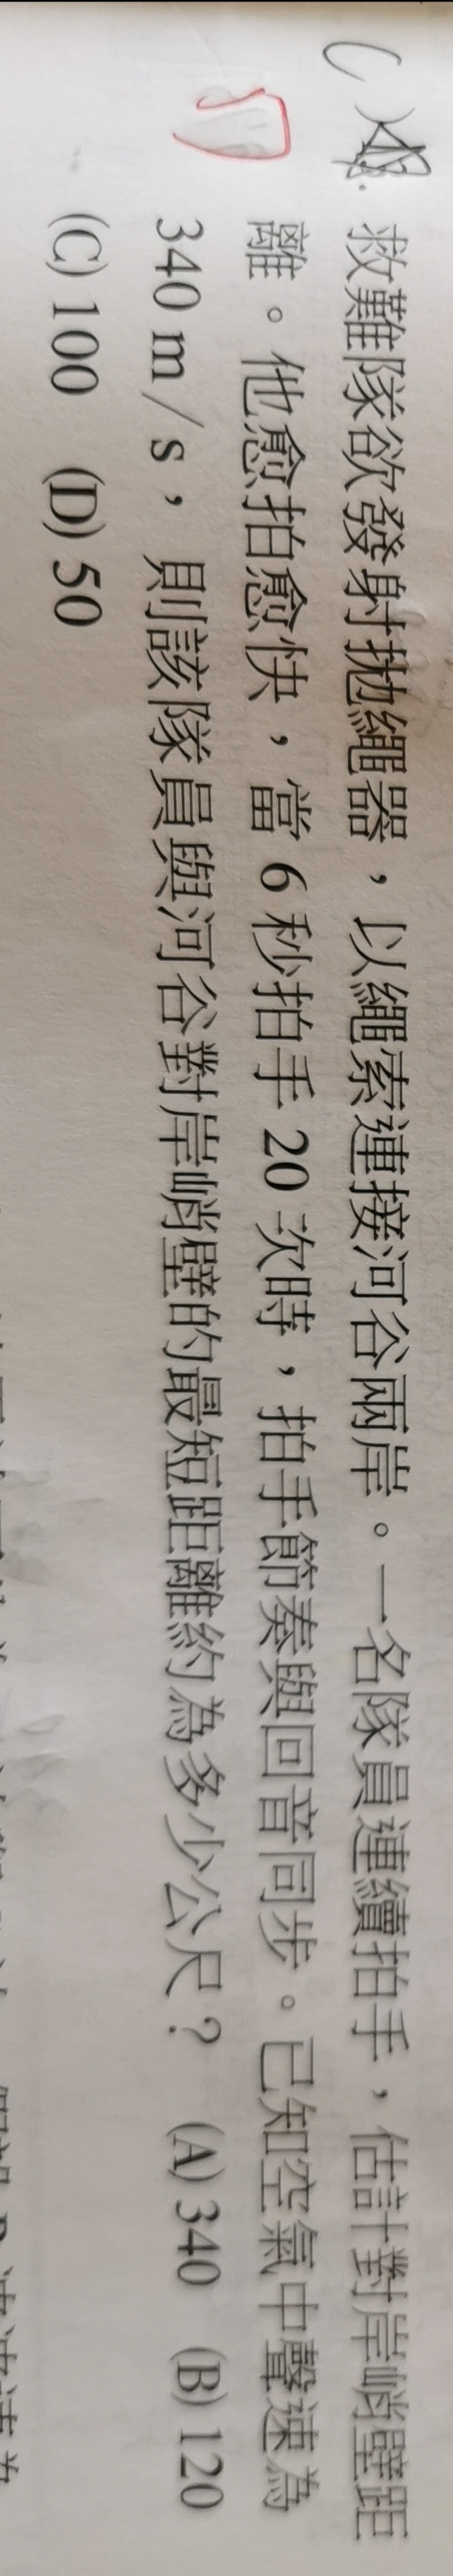 救難隊欲發射拋繩器，以繩索連接河谷兩岸。一名隊員連續拍手，估計對岸峭壁距
離。他愈拍愈快，當 6 秒拍手 20 次時，拍手節奏與回音同步。已知空氣中聲速為
340 m/s，則該隊員與河谷對岸峭壁的最短距離約為多少公尺？ (A) 340 (B) 120
(C) 100 (D) 50